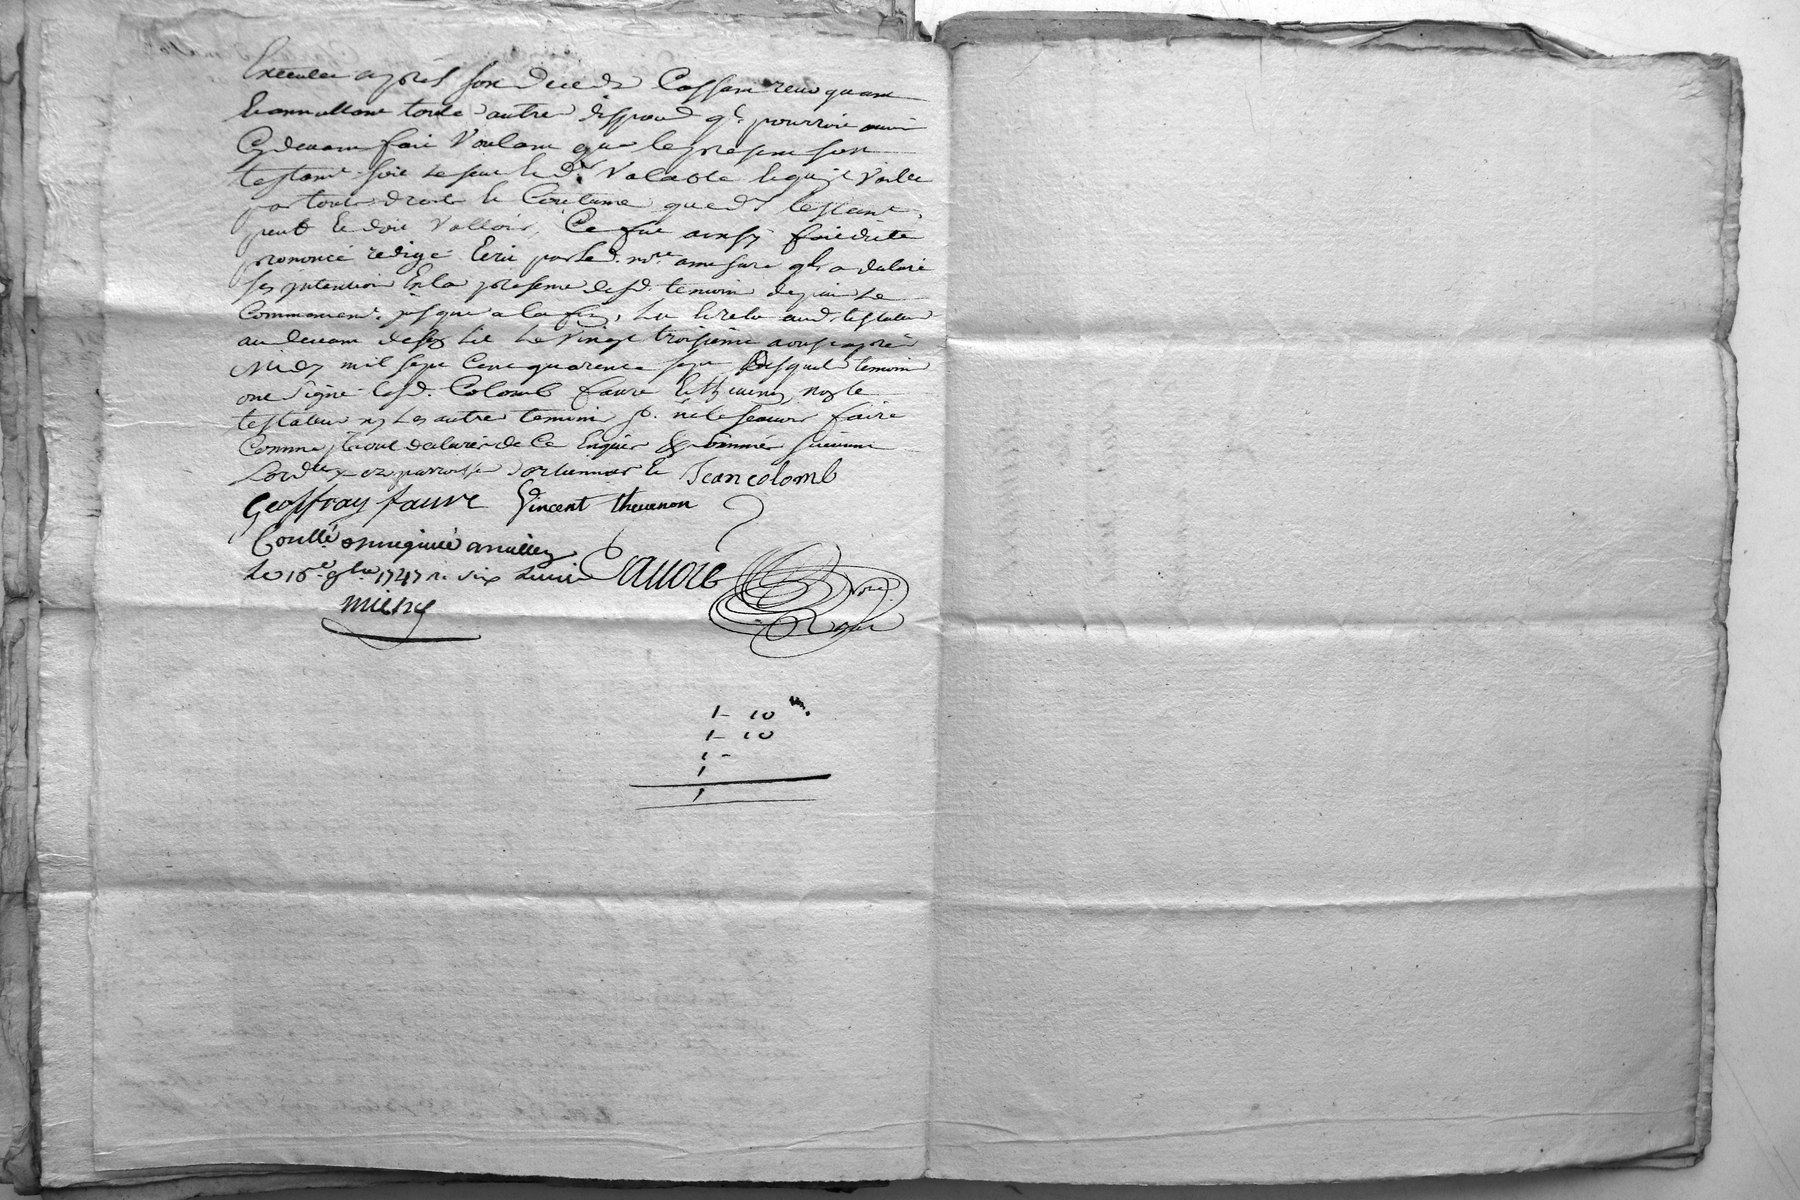 Executée apres son decedz Cassant revoquant
Et annullant toute autre dispoon qu'l pourroit avoir
Cy devant fait Voulant que le present son
testamt soit le seul Et dr Valable Et qu'il Vaille
par toute droits Et Coutume que dt testamt
peut Et doit Valloir, Ce fut ainsy fait dicté
prononcé redigé Ecrit par led. nore a mesure ql a declaré
ses intention En la presence desd. temoin depuis le
Commancemt jusque a la fin, Lu Et relu aud. testateur
au devant de son Lit Le Vingt troisieme aoust apres
Midy mil sept Cent quarente sept desquels temoin
ont signé lesd. Colomb faure Et thevenon, non le
testateur ny Les autre temoins pr. ne le sçavoir faire
Comme ils ont declarés de Ce Enquis & sommés suivant
Lordce parroisse Et Jean colomb
Geoffray faure Vincent thevenon
Conllé
Le 16e 9bre 1747 R. six
Favore
Nore
Royal
1 - 10
1 - 10
1 -
1
1